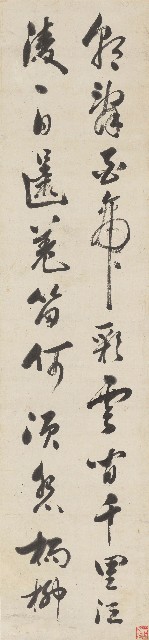 朝辭白帝彩雲間千里江
陵一日還羌笛何須怨楊柳